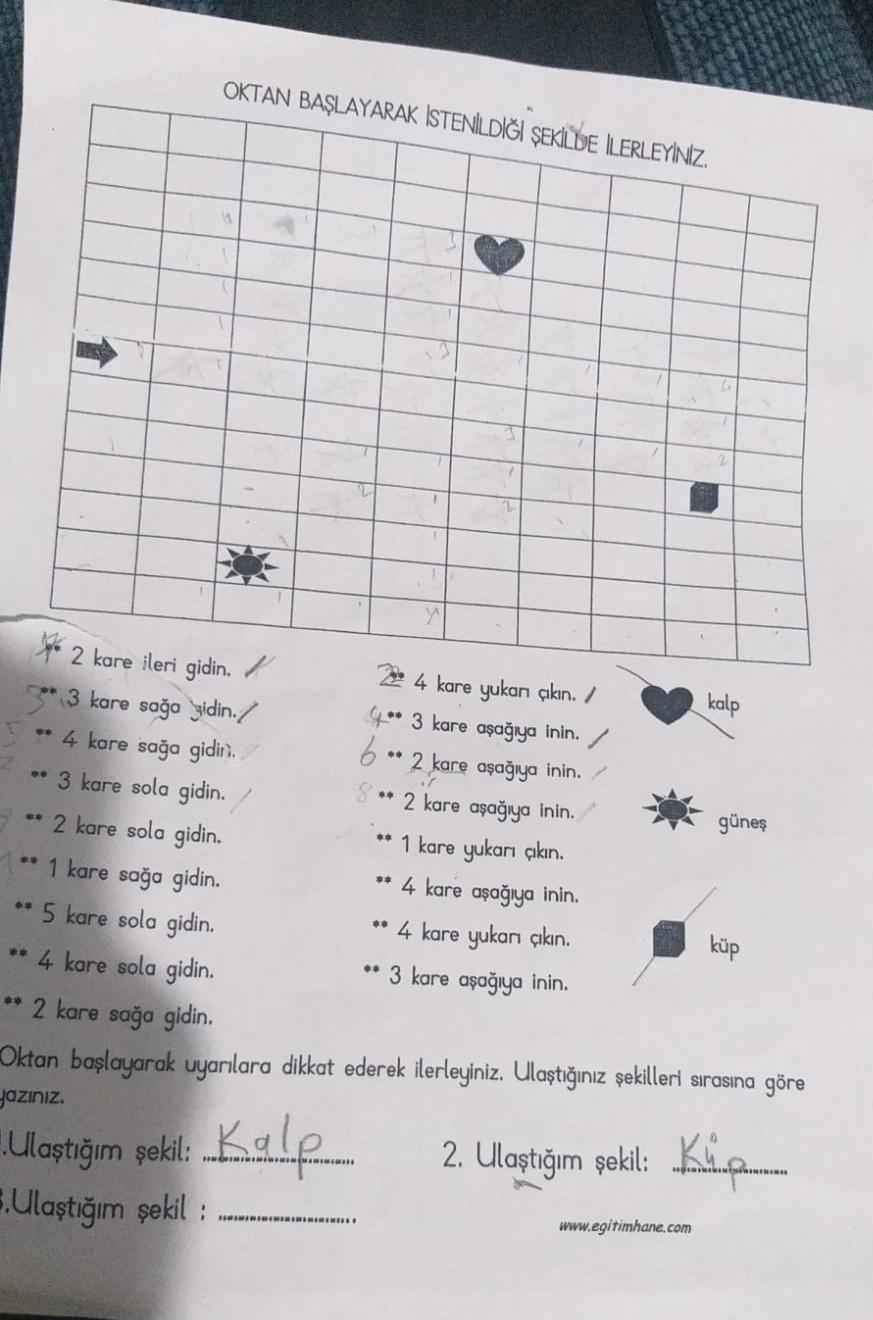 OKTAN BAŞLAYARAK İSTENİLDİĞİ ŞEKİLDE İLERLEYİNİZ.
** 2 kare ileri gidin.
** 4 kare yukarı çıkın.
kalp
** 3 kare sağa gidin.
** 3 kare aşağıya inin.
** 4 kare sağa gidin.
6 ** 2 kare aşağıya inin.
** 3 kare sola gidin.
8 ** 2 kare aşağıya inin.
güneş
** 2 kare sola gidin.
** 1 kare yukarı çıkın.
** 1 kare sağa gidin.
** 4 kare aşağıya inin.
** 5 kare sola gidin.
** 4 kare yukarı çıkın.
küp
** 4 kare sola gidin.
** 3 kare aşağıya inin.
** 2 kare sağa gidin.
Oktan başlayarak uyarılara dikkat ederek ilerleyiniz. Ulaştığınız şekilleri sırasına göre
yazınız.
.Ulaştığım şekil: Kalp
2. Ulaştığım şekil: Küp
3.Ulaştığım şekil : ..............................
www.egitimhane.com